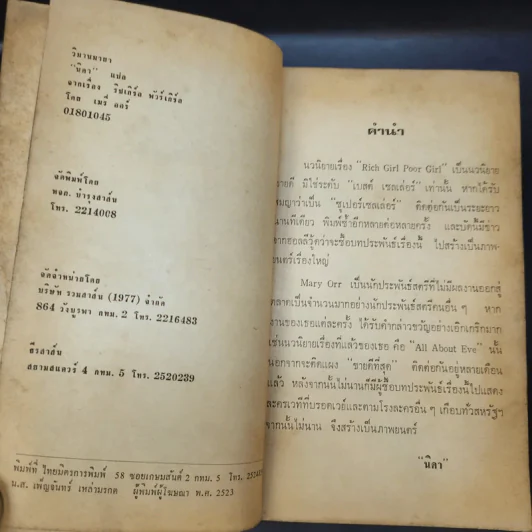 วิมานมายา
"นิดา" แปล
จากเรื่อง ริชเกิร์ล พัวร์เกิร์ล
โดย เมรี่ ออร์
01801045
จัดพิมพ์โดย
หจก. บำรุงสาส์น
โทร. 2214008
จัดจำหน่ายโดย
บริษัท รวมสาส์น (1977) จำกัด
864 วังบูรพา กทม. 2 โทร. 2216483
ธีรสาส์น
สยามสแควร์ 4 กทม. 5 โทร. 2520239
พิมพ์ที่ ไทยมิตรการพิมพ์ 58 ซอยเกษมสันต์ 2 กทม. 5 โทร.
น.ส. เพ็ญจันทร์ เหล่ามรกต ผู้พิมพ์ผู้โฆษณา พ.ศ. 2523
คำนำ
นวนิยายเรื่อง "Rich Girl Poor Girl" เป็นนวนิยาย
ขายดี มิใช่ระดับ "เบสต์ เซลเล่อร์" เท่านั้น หากได้รับ
สมญาว่าเป็น "ซูเปอร์เซลเล่อร์" ติดต่อกันเป็นระยะยาว
นานทีเดียว พิมพ์ซ้ำอีกหลายต่อหลายครั้ง และบัดนี้มีข่าว
จากฮอลลีวู้ดว่าจะซื้อบทประพันธ์เรื่องนี้ ไปสร้างเป็นภาพ-
ยนตร์เรื่องใหญ่
Mary Orr เป็นนักประพันธ์สตรีที่ไม่มีผลงานออกสู่
ตลาดเป็นจำนวนมากอย่างนักประพันธ์สตรีคนอื่น ๆ หาก
งานของเธอแต่ละครั้ง ได้รับคำกล่าวขวัญอย่างเอิกเกริกมาก
เช่นนวนิยายเรื่องที่แล้วของเธอ คือ "All About Eve" นั้น
นอกจากจะติดแผง "ขายดีที่สุด" ติดต่อกันอยู่หลายเดือน
แล้ว หลังจากนั้นไม่นานก็มีผู้ซื้อบทประพันธ์เรื่องนี้ไปแสดง
ละครเวทีที่บรอดเวย์และตามโรงละครอื่น ๆ เกือบทั่วสหรัฐฯ
จากนั้นไม่นาน จึงสร้างเป็นภาพยนตร์
"นิดา"